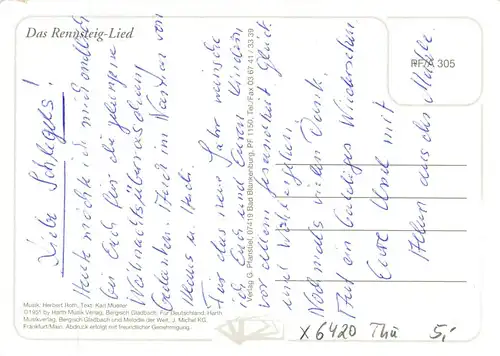 Das Rennsteig-Lied
PF/A 305
Liebe Schlegels!
Heute möchte ich mich endlich
bei Euch für die gelungene
Weihnachtsüberraschung
bedanken. Auch im Namen von
Klaus u. Heidi.
Für das neue Jahr wünsche
ich Euch und Euren Kindern
vor allem Gesundheit Glück
und Wohlergehen.
Nochmals vielen Dank.
Auf ein baldiges Wiedersehen
Eure Uschi mit
Helen aus der Mühle.
Verlag G. Plaesslel, 07419 Bad Blankenburg, PF 1150, Tel/Fax 03 67 41 / 33 39
Musik: Herbert Roth, Text: Karl Müller
©1951 by Harth Musik Verlag, Bergisch Gladbach; Für Deutschland: Harth
Musikverlag, Bergisch Gladbach und Melodie der Welt, J. Michel KG,
Frankfurt/Main. Abdruck erfolgt mit freundlicher Genehmigung.
x 6420 Thü 5,-